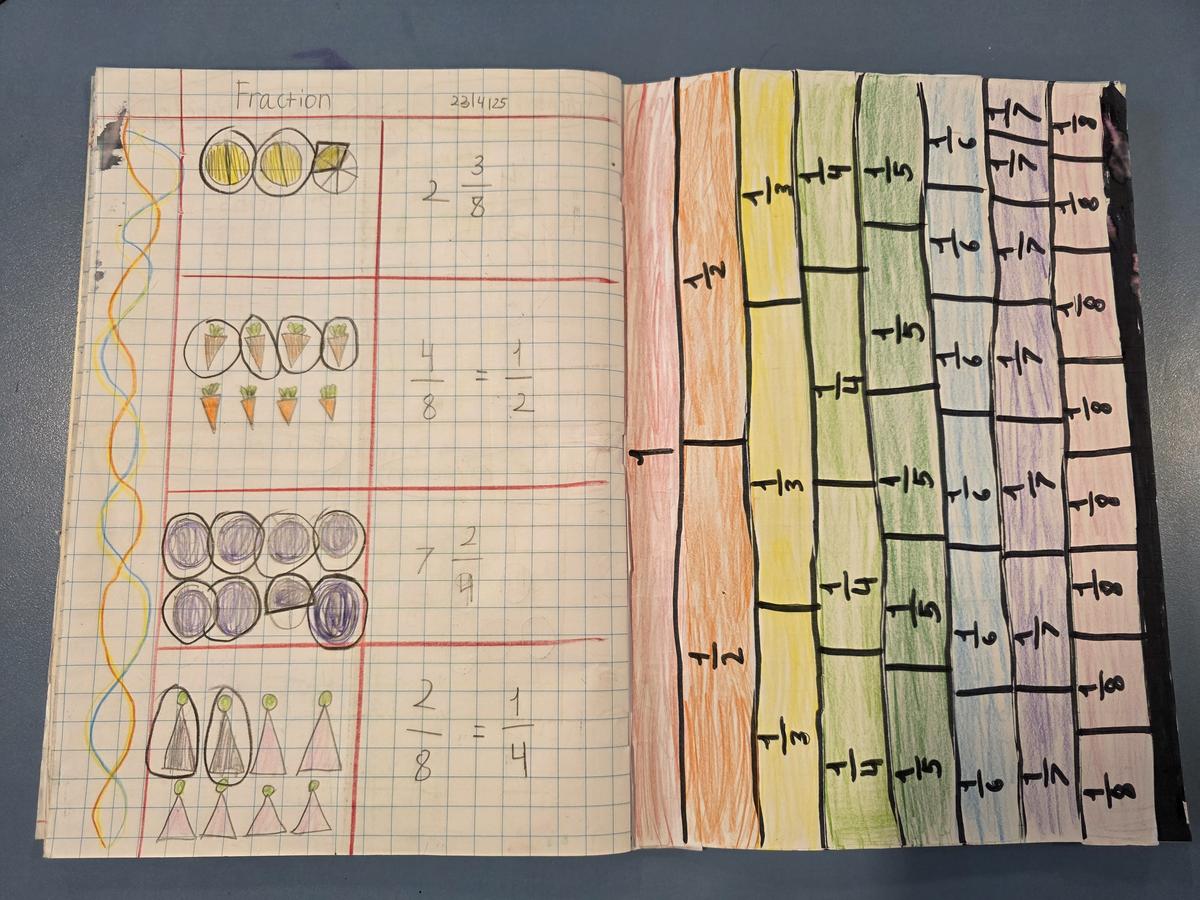 Fraction 23/4/25
2 3/8
4/8 = 1/2
7 2/4
2/8 = 1/4
1
1/2 1/2
1/3 1/3 1/3
1/4 1/4 1/4 1/4
1/5 1/5 1/5 1/5 1/5
1/6 1/6 1/6 1/6 1/6 1/6
1/7 1/7 1/7 1/7 1/7 1/7 1/7
1/8 1/8 1/8 1/8 1/8 1/8 1/8 1/8